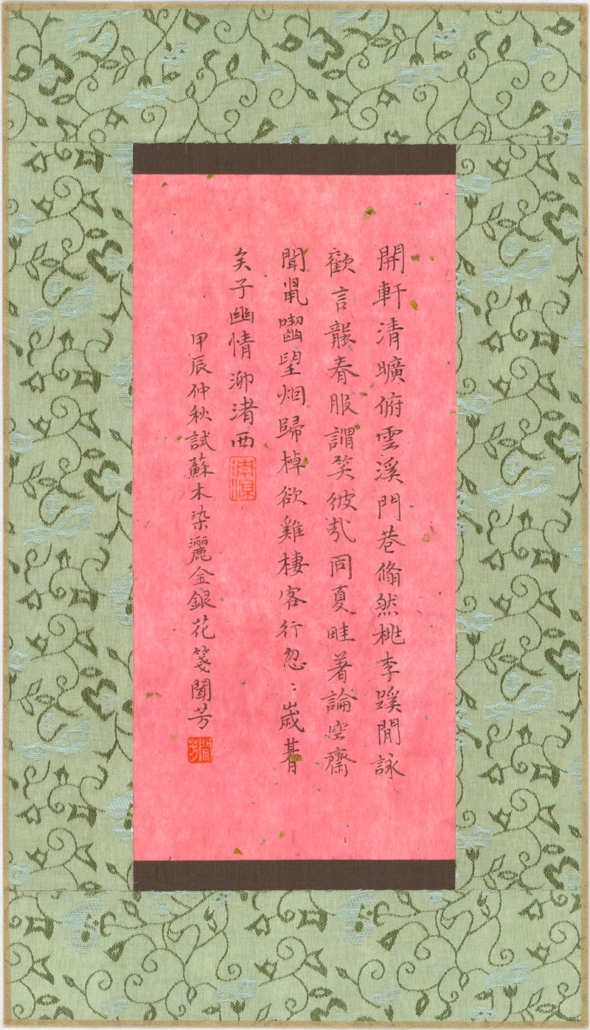 開軒清曠俯雲溪門巷翛然桃李蹊閒詠
歡言襲春服謂笑彼哉同夏畦著論空齋
聞鼠嚙望烟歸棹欲雞棲客行忽〻歲朞
矣子幽情泖渚西
甲辰仲秋試蘇木染灑金銀花箋聞芳